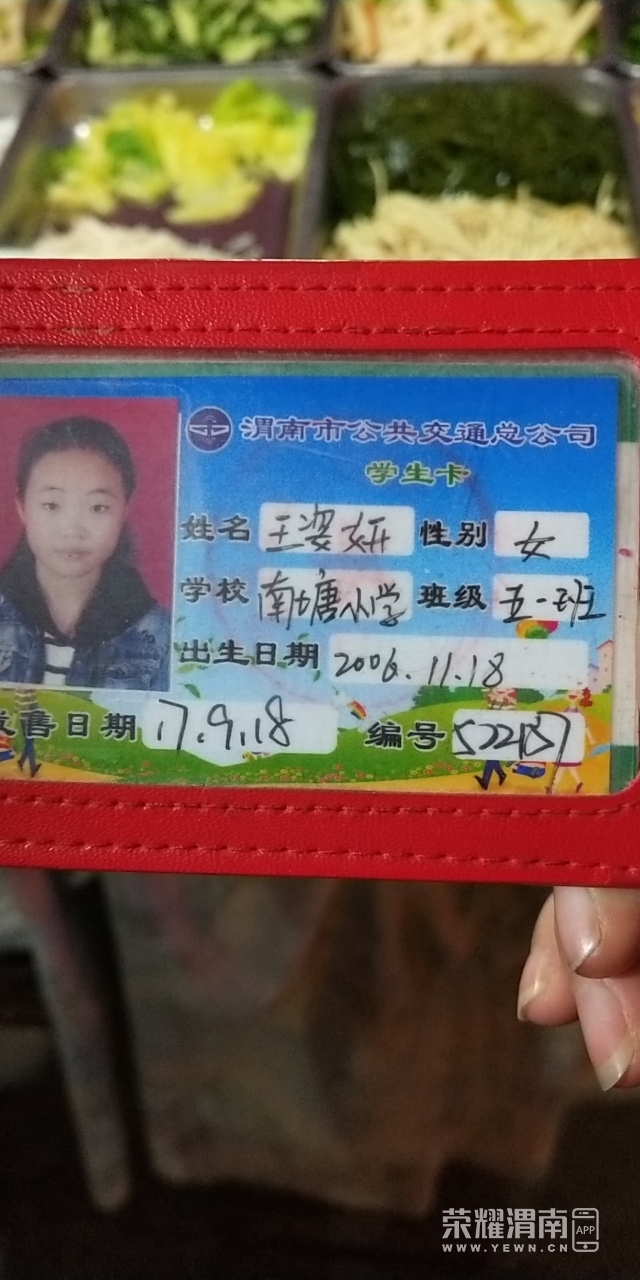 渭南市公共交通总公司
学生卡
姓名 王姿妍 性别 女
学校 南塘小学 班级 五一班
出生日期 2006.11.18
发售日期 17.9.18 编号
荣耀渭南 APP
WWW.YEWN.CN